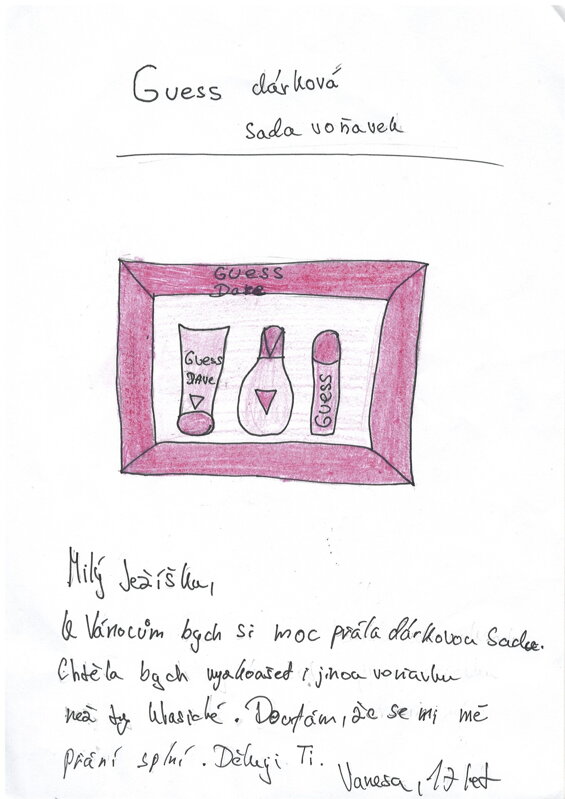 Guess dárková
sada voňavek
Guess
Dare
Guess
DAre
Guess
Milý Ježíšku,
k Vánocům bych si moc přála dárkovou sadu.
Chtěla bych vyzkoušet i jinou voňavku
než ty klasické. Doufám, že se mi mé
přání splní. Děkuji Ti.
Vanesa, 17 let